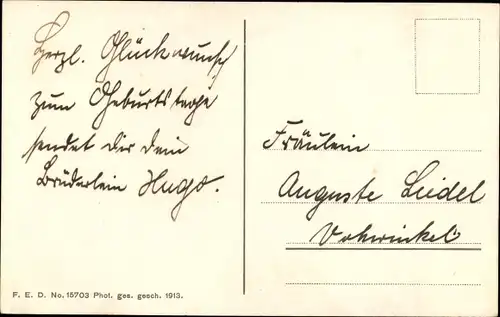 Herzl. Glückwunsch
zum Geburtstage
sendet dir dein
Brüderlein Hugo.
Fräulein
Auguste Seidel
Vohwinkel
F. E. D. No. 15703 Phot. ges. gesch. 1913.